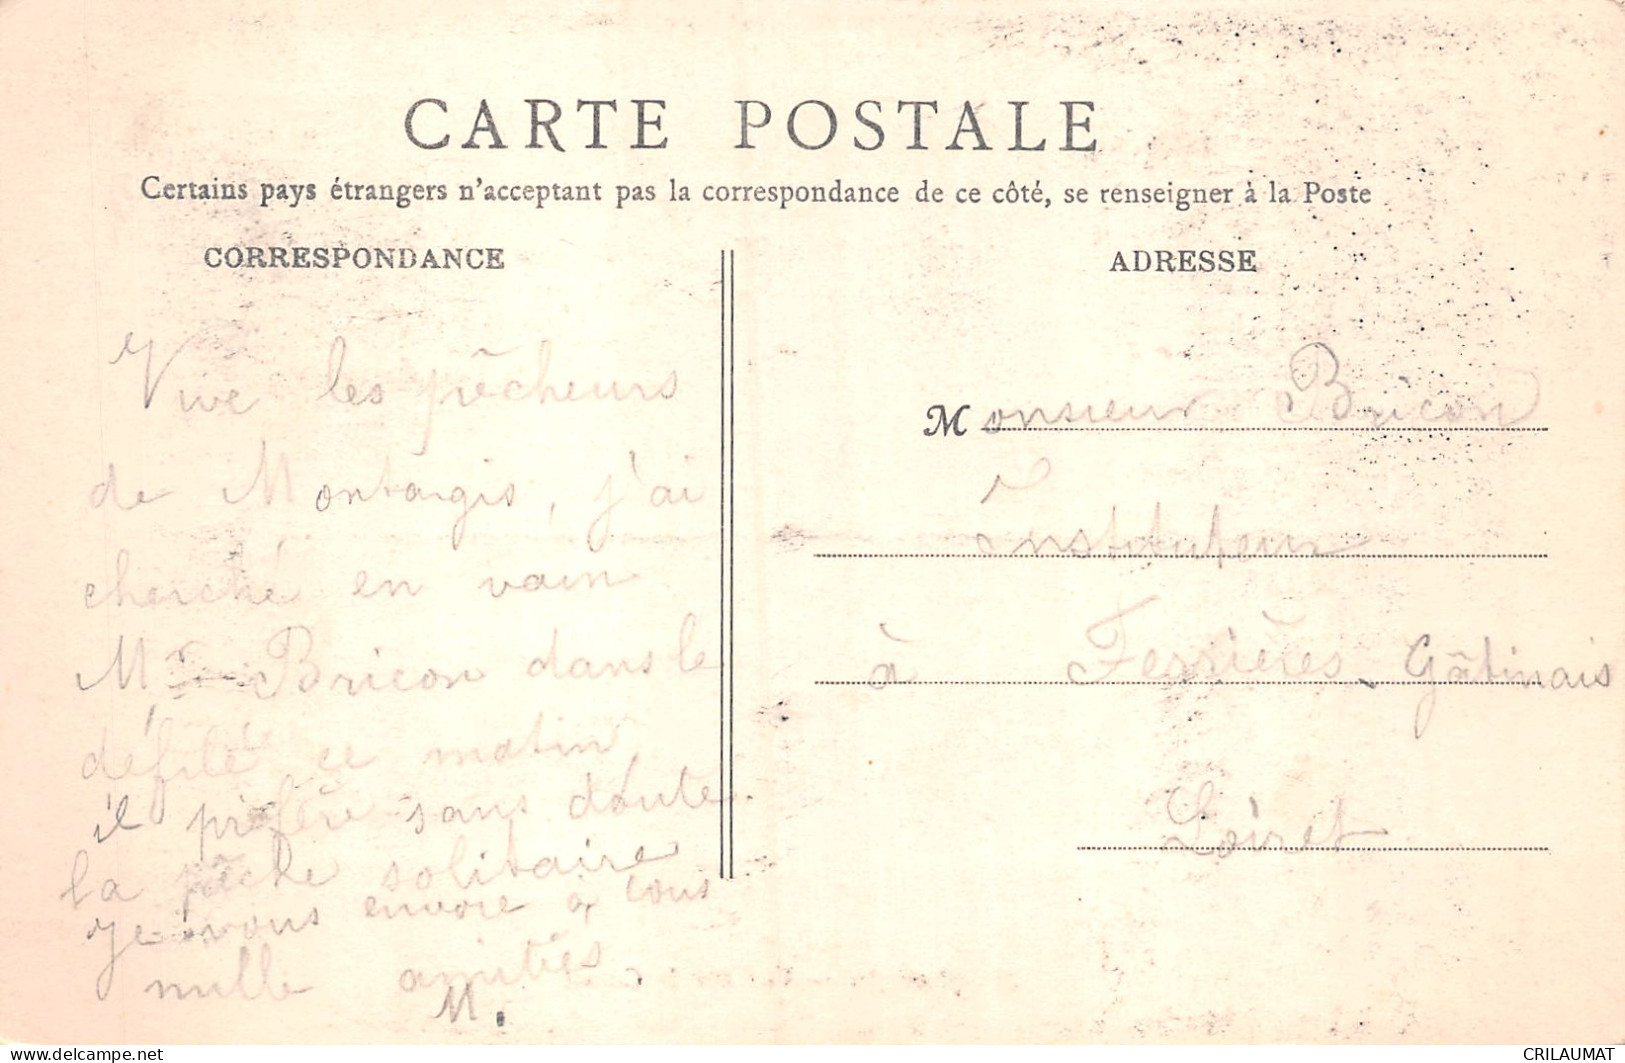 CARTE POSTALE
Certains pays étrangers n'acceptant pas la correspondance de ce côté, se renseigner à la Poste
CORRESPONDANCE
Vive les pêcheurs
de Montargis, j'ai
cherché en vain
Mr Bricon dans le
défilé ce matin
il préfère sans doute
la pêche solitaire
Je vous envoie à tous
mille amitiés.
M.
ADRESSE
Monsieur Bricon
Instituteur
à Ferrières-Gâtinais
Loiret
www.delcampe.net
CRILAUMAT